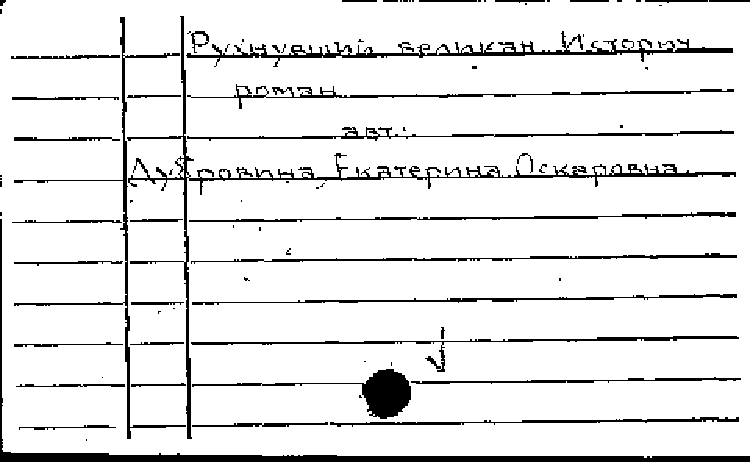 Рухнувший великан. Историч.
роман
авт.:
Дубровина, Екатерина Оскаровна.